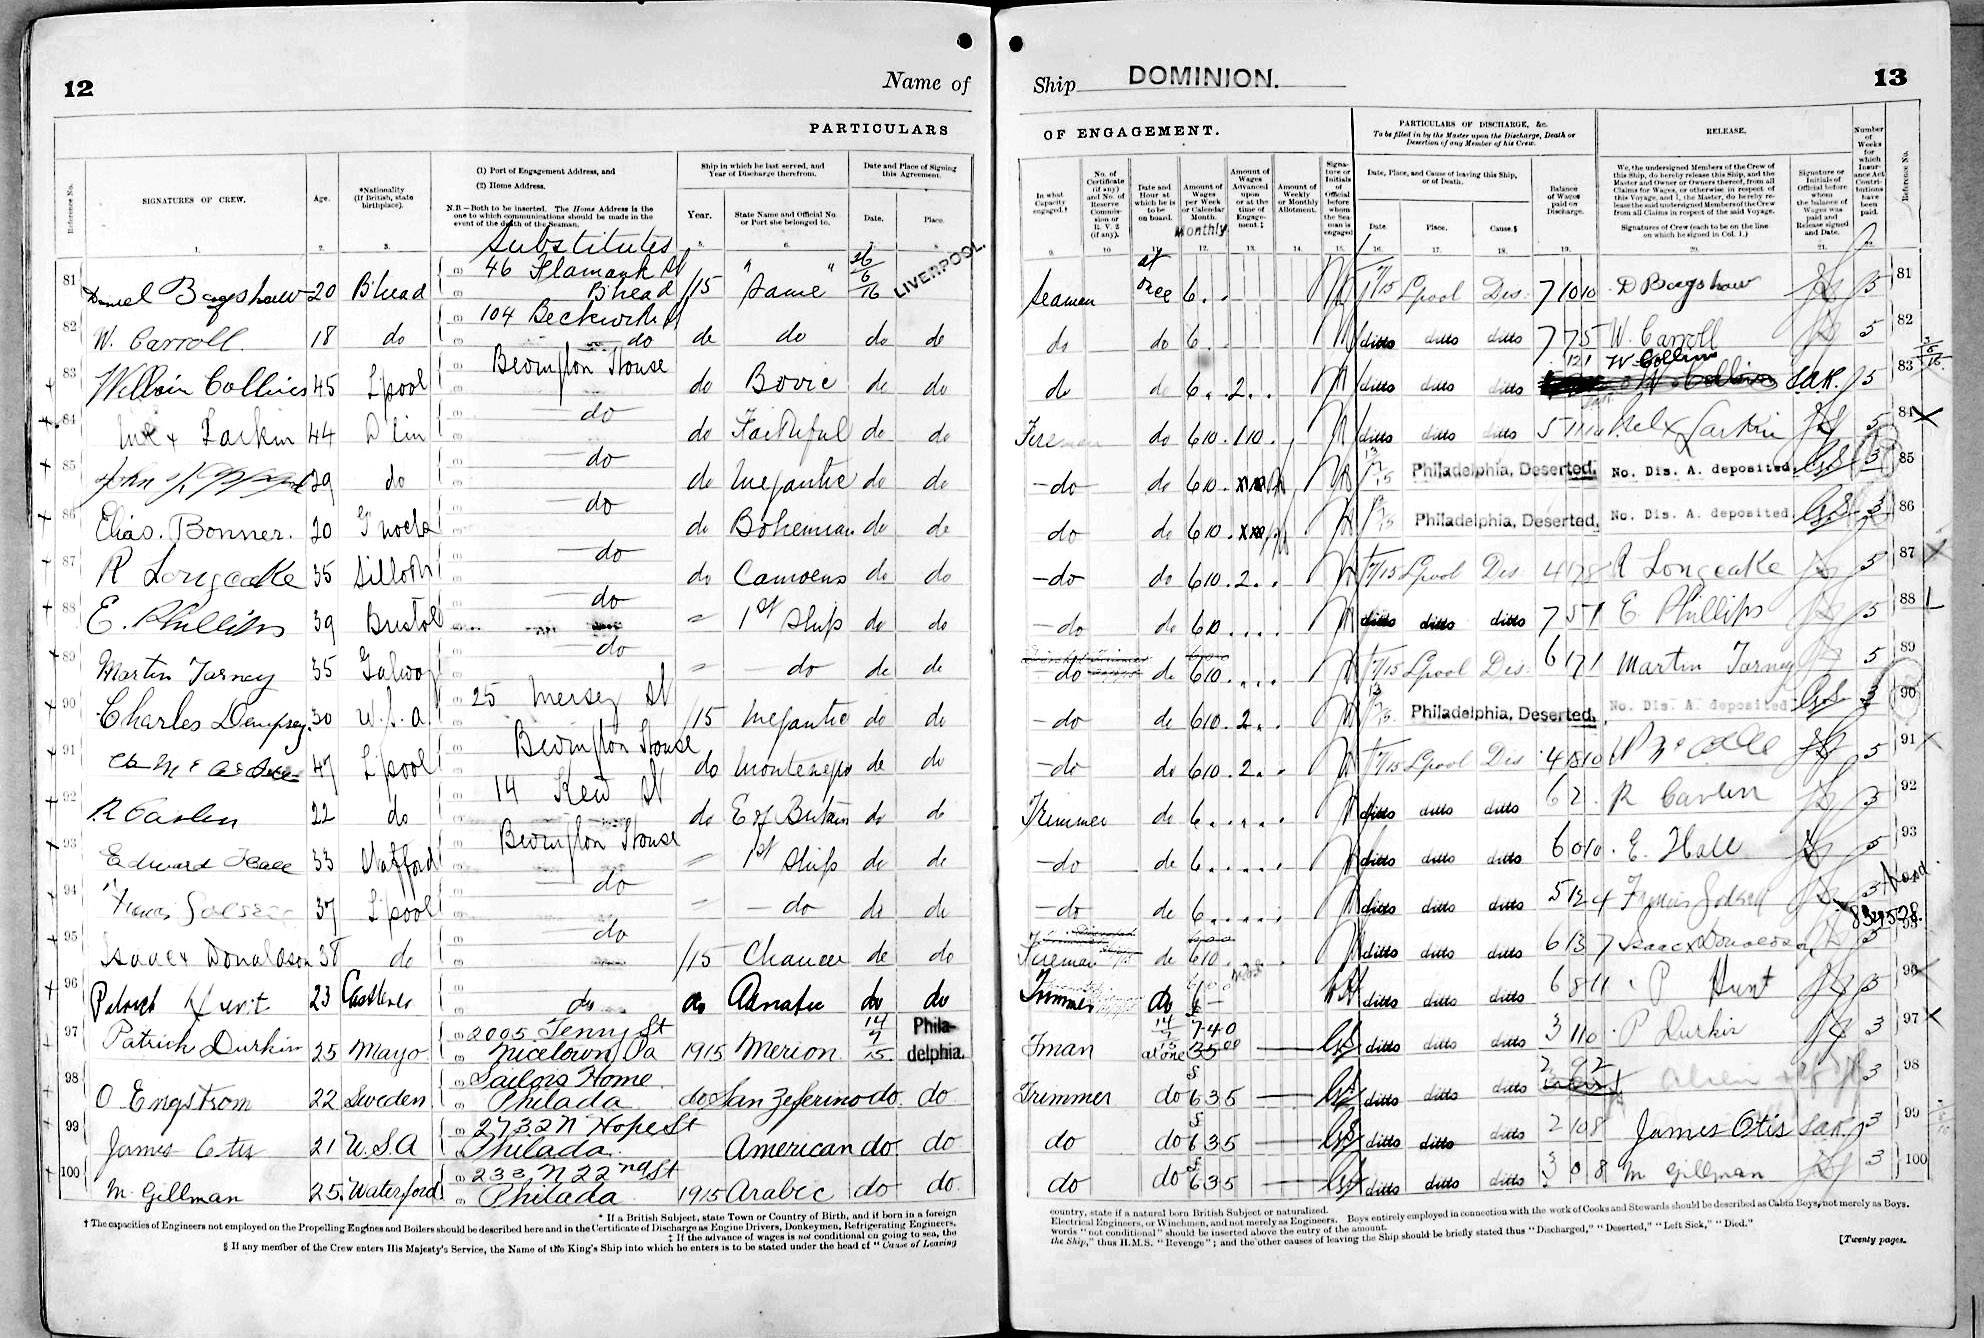 12
Name of
PARTICULARS
Reference No.
SIGNATURES OF CREW.
Age.
*Nationality (If British, state birthplace).
(1) Port of Engagement Address, and
(2) Home Address.
N.B.—Both to be inserted. The Home Address is the one to which communications should be made in the event of the death of the Seaman.
Ship in which he last served, and Year of Discharge therefrom.
Year.
State Name and Official No. or Port she belonged to.
Date and Place of Signing this Agreement.
Date.
Place.
Substitutes
81 Daniel Bagshaw 20 B'head 46 Flamank St B'head /15 Same LIVERPOOL.
82 W. Carroll 18 do 104 Beckwith St do do do do do
83 William Collins 45 L'pool Bevington House do Bovic do do
84 Larkin 44 D'lin do do Faithful do do
85 John 29 do do do Megantic do do
86 Elias. Bonner. 20 do do Bohemian do do
87 R Longcake 35 Silloth do do Camoens do do
88 E. Phillips 39 Bristol do 1st Ship do do
89 Martin Tarney 35 Galway do do do do
90 Charles Dempsey. 30 U.S.A 25 Mersey St /15 Megantic do do
91 47 L'pool Bevington House do do do
92 R Carlen 22 do 14 Kew St do E of Britain do do
93 Edward Hall 33 Stafford Bevington House 1st Ship do do
94 Francis 37 L'pool do do do do
95 Isaac x Donaldson 38 do do /15 Chaucer do do
96 Patrick Hunt 23 do do Adriatic do do
97 Patrick Durkin 25 Mayo 2005 Jenny St Nicetown, Pa 1915 Merion 14/7 15. Phila-delphia.
98 O Engstrom 22 Sweden Sailors Home Philada do San Zeferino do do
99 James Otis 21 U.S.A 2732 N Hope St Philada. American do do
100 M. Gillman 25. Waterford 233 N 22nd St Philada 1915 Arabic do do
* If a British Subject, state Town or Country of Birth, and if born in a foreign
† The capacities of Engineers not employed on the Propelling Engines and Boilers should be described here and in the Certificate of Discharge as Engine Drivers, Donkeymen, Refrigerating Engineers,
‡ If the advance of wages is not conditional on going to sea, the
§ If any member of the Crew enters His Majesty's Service, the Name of the King's Ship into which he enters is to be stated under the head of "Cause of Leaving
Ship DOMINION.
13
OF ENGAGEMENT.
PARTICULARS OF DISCHARGE, &c.
To be filled in by the Master upon the Discharge, Death or Desertion of any Member of his Crew.
RELEASE.
In what Capacity engaged.†
No. of Certificate (if any) and No. of Reserve Commission or R. V. 2 (if any).
Date and Hour at which he is to be on board.
Amount of Wages per Week or Calendar Month.
Monthly
Amount of Wages Advanced upon or at the time of Engagement.‡
Amount of Weekly or Monthly Allotment.
Signature or Initials of Official before whom the Seaman is engaged
Date, Place, and Cause of leaving this Ship, or of Death.
Date.
Place.
Cause.§
Balance of Wages paid on Discharge.
We, the undersigned Members of the Crew of this Ship, do hereby release this Ship, and the Master and Owner or Owners thereof, from all Claims for Wages, or otherwise in respect of this Voyage, and I, the Master, do hereby release the said undersigned Members of the Crew from all Claims in respect of the said Voyage.
Signatures of Crew (each to be on the line on which he signed in Col. 1.)
Signature or Initials of Official before whom the balance of Wages was paid and Release signed and Date.
Number of Weeks for which Insurance Act Contributions have been paid.
Reference No.
Seaman at once 6 L'pool Dis. 7 10 10 D Bagshaw 5 81
do do 6 ditto ditto ditto 7 7 5 W. Carroll 5 82
do do 6 2 ditto ditto ditto W. Collins S.A.R. 5 83
Fireman do 6 10 1 10 ditto ditto ditto Larkin 5 84
do do 6 10 Philadelphia, Deserted. No. Dis. A. deposited. 3 85
do do 6 10 Philadelphia, Deserted. No. Dis. A. deposited. 3 86
do do 6 10 2 L'pool Dis R Longcake 5 87
do do 6 10 ditto ditto ditto 7 5 1 E Phillips 5 88
do do 6 10 L'pool Dis. 6 17 1 Martin Tarney 5 89
do do 6 10 2 Philadelphia, Deserted. No. Dis. A. deposited. 3 90
do do 6 10 2 L'pool Dis 5 91
Trimmer do 6 ditto ditto ditto 6 2 R Carlen 92
do do 6 ditto ditto ditto 6 0 10 E. Hall 5 93
do do 6 ditto ditto ditto 5 12 4 Francis 94
Fireman do 6 10 ditto ditto ditto 6 13 7 Isaac x Donaldson 95
Trimmer do ditto ditto ditto 6 8 11 P Hunt 5 96
Fman at once 7 40 35 00 ditto ditto ditto 3 1 10 P Durkin 3 97
Trimmer do 6 35 ditto ditto ditto 3 98
do do 6 35 ditto ditto ditto 2 10 8 James Otis S.A.R. 3 99
do do 6 35 ditto ditto ditto 3 0 8 M Gillman 3 100
country, state if a natural born British Subject or naturalized.
Electrical Engineers, or Winchmen, and not merely as Engineers. Boys entirely employed in connection with the work of Cooks and Stewards should be described as Cabin Boys, not merely as Boys.
words "not conditional" should be inserted above the entry of the amount.
the Ship," thus H.M.S. "Revenge"; and the other causes of leaving the Ship should be briefly stated thus "Discharged," "Deserted," "Left Sick," "Died."
[Twenty pages.